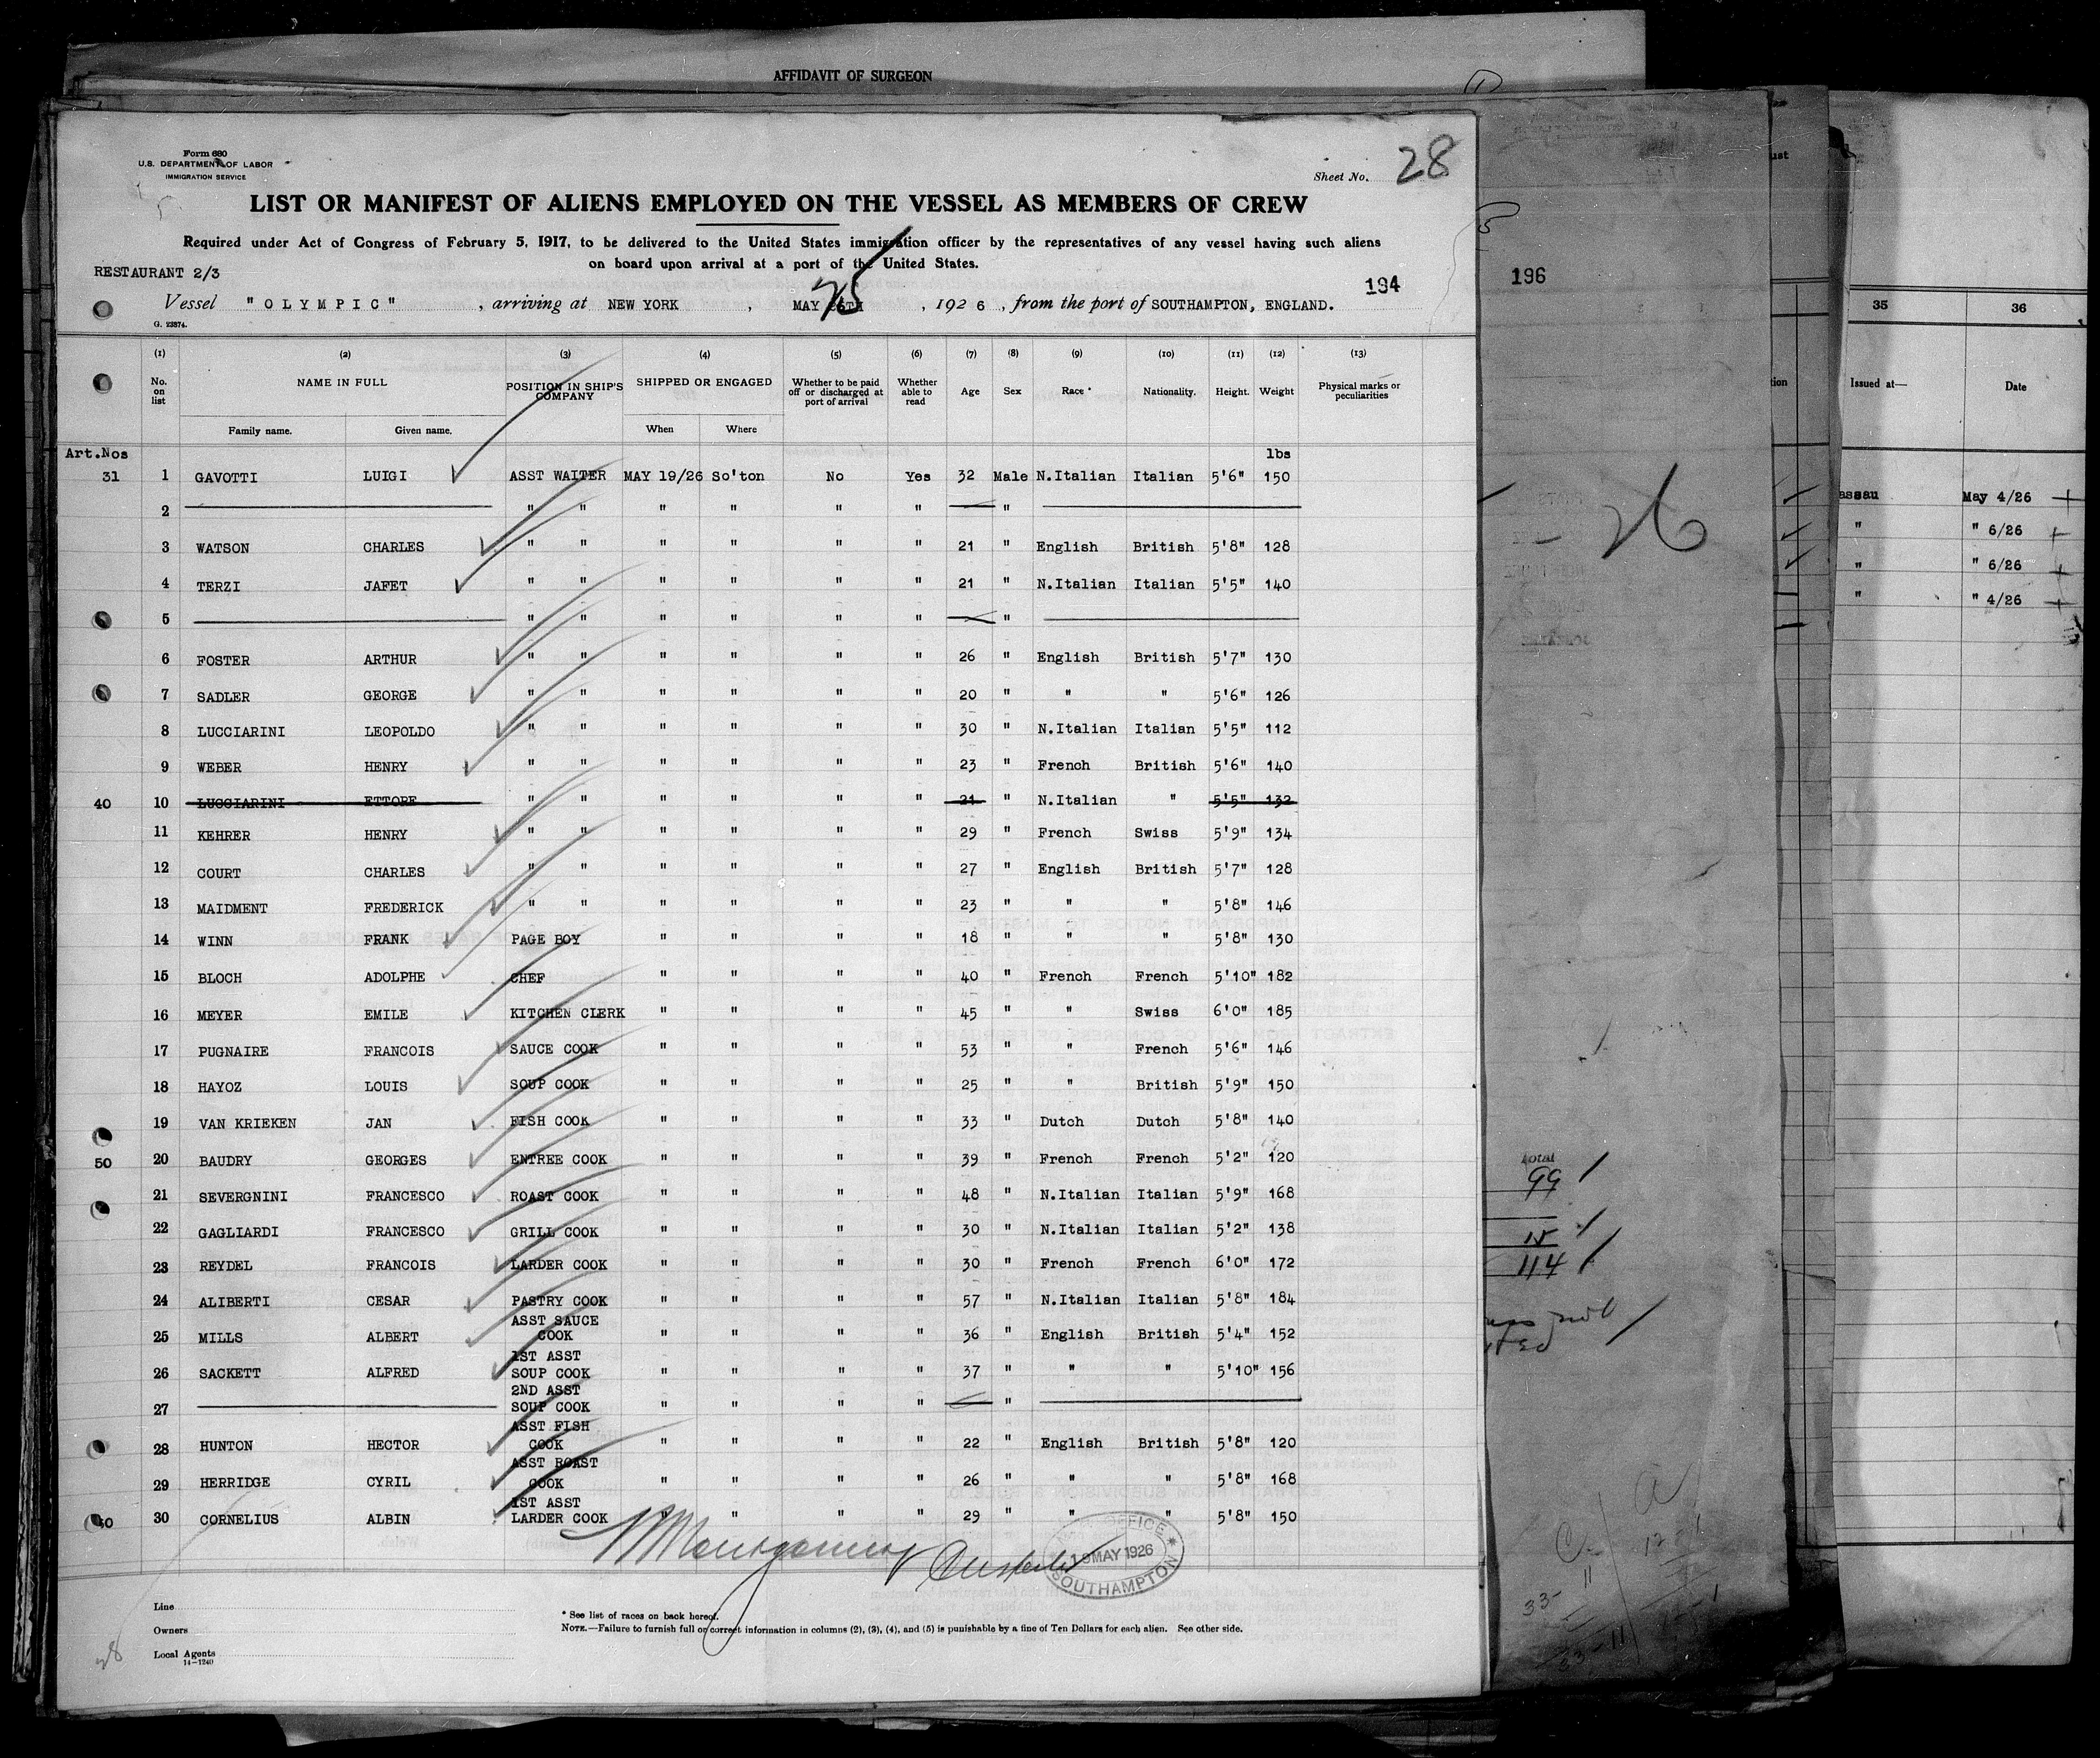 AFFIDAVIT OF SURGEON
Form 680
U.S. DEPARTMENT OF LABOR
IMMIGRATION SERVICE
Sheet No. 28
LIST OR MANIFEST OF ALIENS EMPLOYED ON THE VESSEL AS MEMBERS OF CREW
Required under Act of Congress of February 5, 1917, to be delivered to the United States immigration officer by the representatives of any vessel having such aliens
on board upon arrival at a port of the United States.
RESTAURANT 2/3
194
Vessel "OLYMPIC", arriving at NEW YORK, MAY 25, 1926, from the port of SOUTHAMPTON, ENGLAND.
G. 23874.
(1) (2) (3) (4) (5) (6) (7) (8) (9) (10) (11) (12) (13)
No. on list NAME IN FULL POSITION IN SHIP'S COMPANY SHIPPED OR ENGAGED Whether to be paid off or discharged at port of arrival Whether able to read Age Sex Race * Nationality. Height. Weight Physical marks or peculiarities
Family name. Given name. When Where
Art.Nos lbs
31 1 GAVOTTI LUIGI ASST WAITER MAY 19/26 So'ton No Yes 32 Male N.Italian Italian 5'6" 150
2 " " " " " " "
3 WATSON CHARLES " " " " " " 21 " English British 5'8" 128
4 TERZI JAFET " " " " " " 21 " N.Italian Italian 5'5" 140
5 " " " " " " "
6 FOSTER ARTHUR " " " " " " 26 " English British 5'7" 130
7 SADLER GEORGE " " " " " " 20 " " " 5'6" 126
8 LUCCIARINI LEOPOLDO " " " " " " 30 " N.Italian Italian 5'5" 112
9 WEBER HENRY " " " " " " 23 " French British 5'6" 140
40 10 LUCCIARINI ETTORE " " " " " " 21 " N.Italian " 5'5" 132
11 KEHRER HENRY " " " " " " 29 " French Swiss 5'9" 134
12 COURT CHARLES " " " " " " 27 " English British 5'7" 128
13 MAIDMENT FREDERICK " " " " " " 23 " " " 5'8" 146
14 WINN FRANK PAGE BOY " " " " 18 " " " 5'8" 130
15 BLOCH ADOLPHE CHEF " " " " 40 " French French 5'10" 182
16 MEYER EMILE KITCHEN CLERK " " " " 45 " " Swiss 6'0" 185
17 PUGNAIRE FRANCOIS SAUCE COOK " " " " 53 " " French 5'6" 146
18 HAYOZ LOUIS SOUP COOK " " " " 25 " " British 5'9" 150
19 VAN KRIEKEN JAN FISH COOK " " " " 33 " Dutch Dutch 5'8" 140
50 20 BAUDRY GEORGES ENTREE COOK " " " " 39 " French French 5'2" 120
21 SEVERGNINI FRANCESCO ROAST COOK " " " " 48 " N.Italian Italian 5'9" 168
22 GAGLIARDI FRANCESCO GRILL COOK " " " " 30 " N.Italian Italian 5'2" 138
23 REYDEL FRANCOIS LARDER COOK " " " " 30 " French French 6'0" 172
24 ALIBERTI CESAR PASTRY COOK " " " " 57 " N.Italian Italian 5'8" 184
25 MILLS ALBERT ASST SAUCE COOK " " " " 36 " English British 5'4" 152
26 SACKETT ALFRED 1ST ASST SOUP COOK " " " " 37 " " " 5'10" 156
27 2ND ASST SOUP COOK " " " " "
28 HUNTON HECTOR ASST FISH COOK " " " " 22 " English British 5'8" 120
29 HERRIDGE CYRIL ASST ROAST COOK " " " " 26 " " " 5'8" 168
60 30 CORNELIUS ALBIN 1ST ASST LARDER COOK " " " " 29 " " " 5'8" 150
OFFICE
19 MAY 1926
SOUTHAMPTON
Line
Owners
Local Agents
14-1240
* See list of races on back hereof.
NOTE.—Failure to furnish full or correct information in columns (2), (3), (4), and (5) is punishable by a fine of Ten Dollars for each alien. See other side.
28
196
26
total
99
15
114
35 36
Issued at— Date
May 4/26
" " 6/26
" " 6/26
" " 4/26